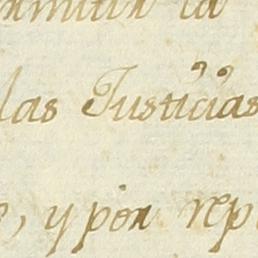 las Justicias
, y por rep